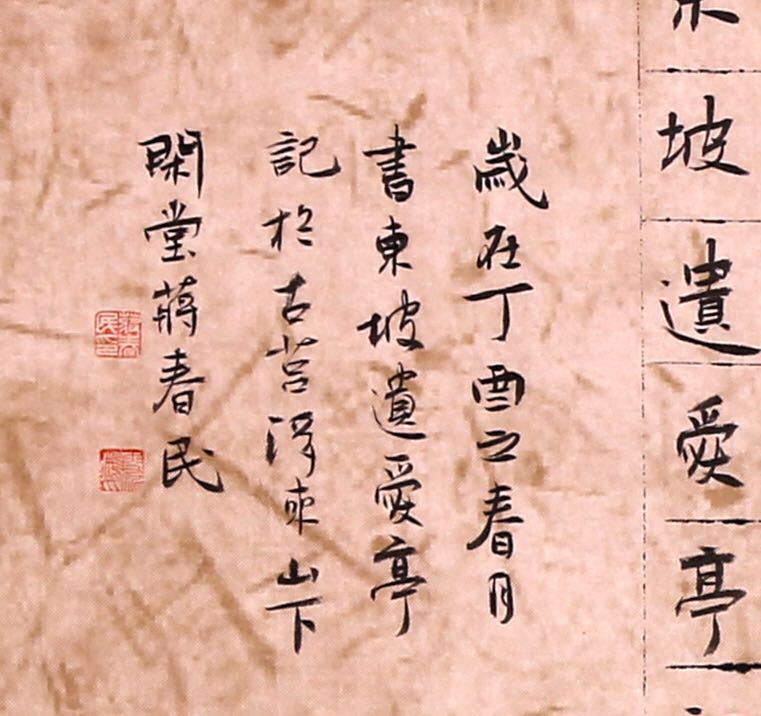 坡遺愛亭
歲在丁酉之春月
書東坡遺愛亭
記於古莒浮來山下
閑堂蔣春民